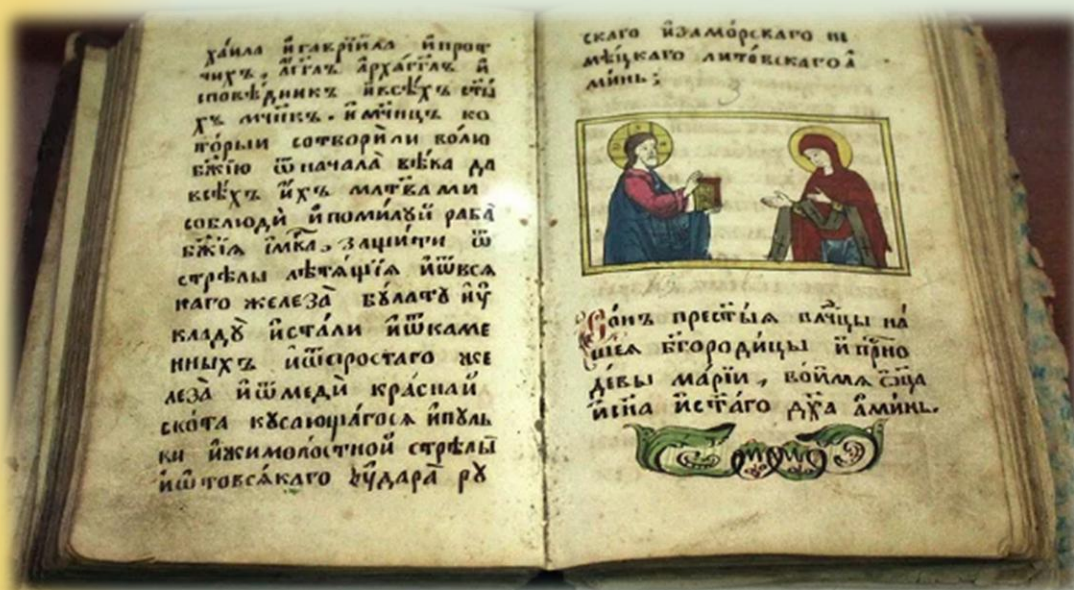 хаи́ла и҆гаврїи́ла и҆проч
чихъ, а҆́гг҃лъ а҆рха́гг҃лъ и҆
споведникъ и҆все́хъ ст҃ы
хъ мч҃нкъ. и҆мч҃ницъ ко
то́рыи сотвори́ли волю
бж҃їю ѿнача́ла ве́ка да
все́хъ и҆́хъ мл҃тва ми
соблюди̇̀ и҆поми́лꙋй раба̀
бж҃їѧ и҆́мкъ, защи́ти ѿ
стрѣлы лѣтѧ́щїѧ и҆ѿвсѧ
каго железа̀ бꙋлатꙋ и҆ꙋ
кладꙋ̀ и҆ста́ли и҆ѿкаме
нныхъ и҆ѿпростаго же
леза̀ и҆ѿмеди̇̀ кра́снай
ско́та кꙋсающа́госѧ и҆пꙋль
ки и҆жимолостной стрѣлы̀
и҆ѿтовсѧ́каго ꙋ҆дара̀ рꙋ
скаго и҆замо́рскаго не
ме́цкаго лито́вскагоа҆
ми́нь:
Со́нъ прест҃ы́ѧ влⷣчцы на́
шеѧ бг҃оро́дицы и҆прⷭ҇но
де́вы мар́їи, во́имѧ ѻ҆ц҃а
и҆сн҃а и҆ст҃а́го дх҃а а҆ми́нь.